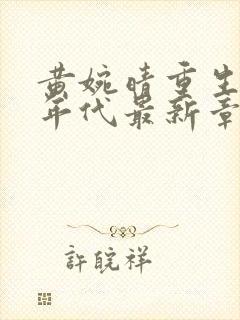 黄婉晴重生
年代最新章
許皖祥